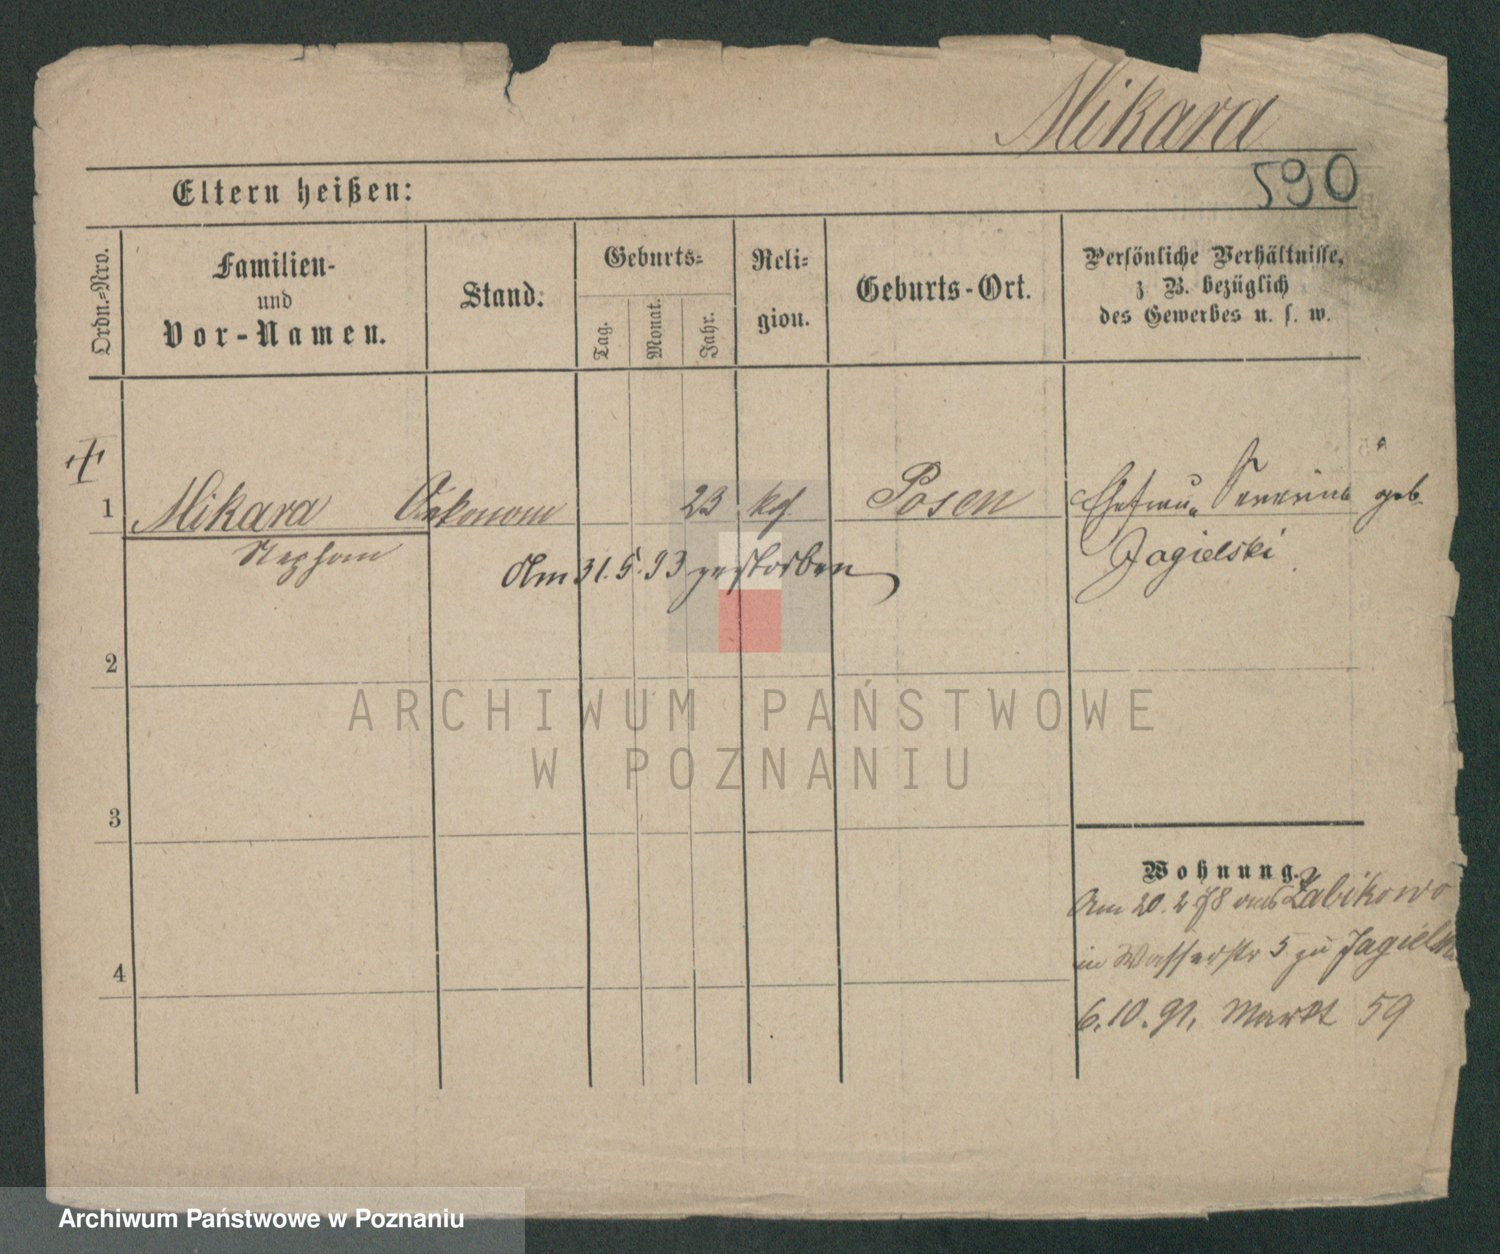 Mikara
590
Eltern heißen:
Ordn.=Nro.
Familien-
und
Vor-Namen.
Stand.
Geburts=
Tag.
Monat.
Jahr.
Reli=
gion.
Geburts-Ort.
Persönliche Verhältnisse,
z. B. bezüglich
des Gewerbes u. s. w.
1 Mikara Oekonom 23 kg Posen Ehefrau Severina geb.
Stephan
Jagielski
Am 31. 5. 93 gestorben
2
ARCHIWUM PAŃSTWOWE
W POZNANIU
3
Wohnung.
Am 20. 2 78 aus Zabikowo
4
in Wasserstr 5 zu
6. 10. 91. Markt 59
Archiwum Państwowe w Poznaniu